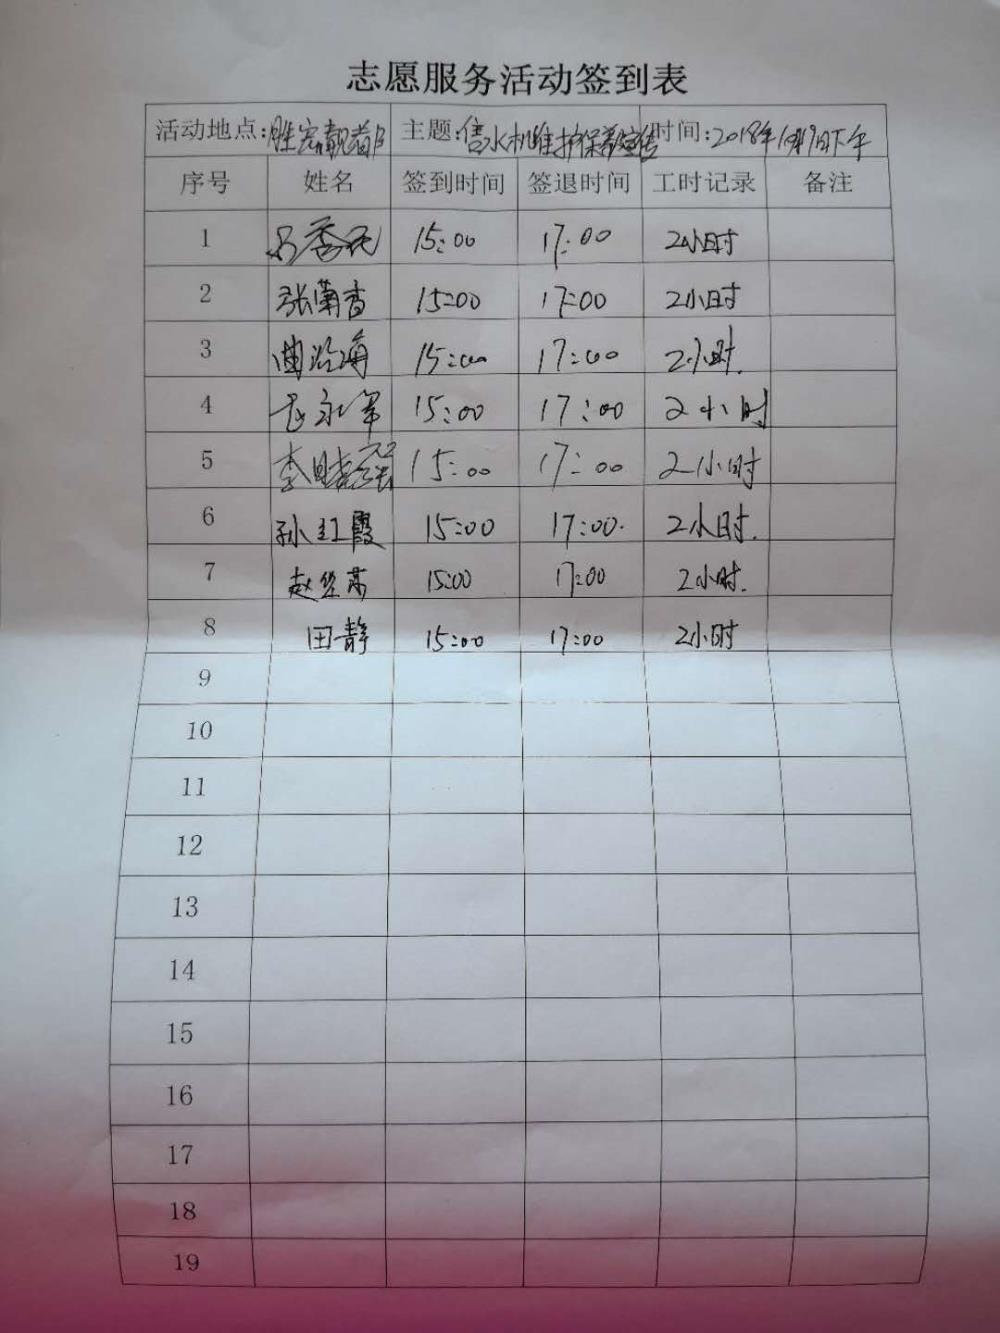 志愿服务活动签到表
活动地点:胜宏靓首 主题:售水机维护保养宣传 时间:2018年 月19日下午
序号 姓名 签到时间 签退时间 工时记录 备注
1 15:00 17:00 2小时
2 张兰香 15:00 17:00 2小时
3 曲 海 15:00 17:00 2小时.
4 永军 15:00 17:00 2小时
5 李 强 15:00 17:00 2小时
6 孙红霞 15:00 17:00. 2小时.
7 赵 15:00 17:00 2小时.
8 田静 15:00 17:00 2小时
9
10
11
12
13
14
15
16
17
18
19